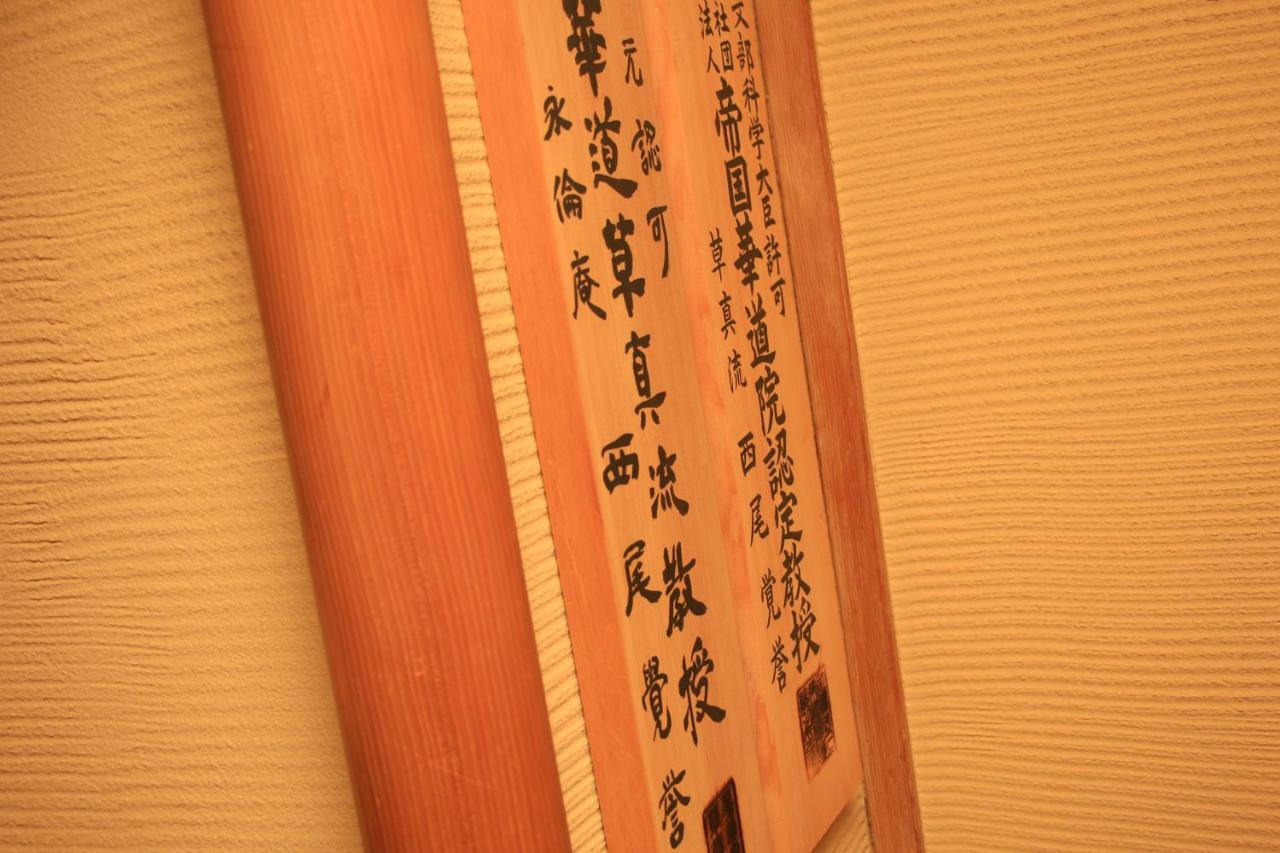 文部科学大臣許可
社団
法人
帝国華道院認定教授
草真流 西尾覚誉
元認可
華道草真流教授
永倫庵 西尾覺誉